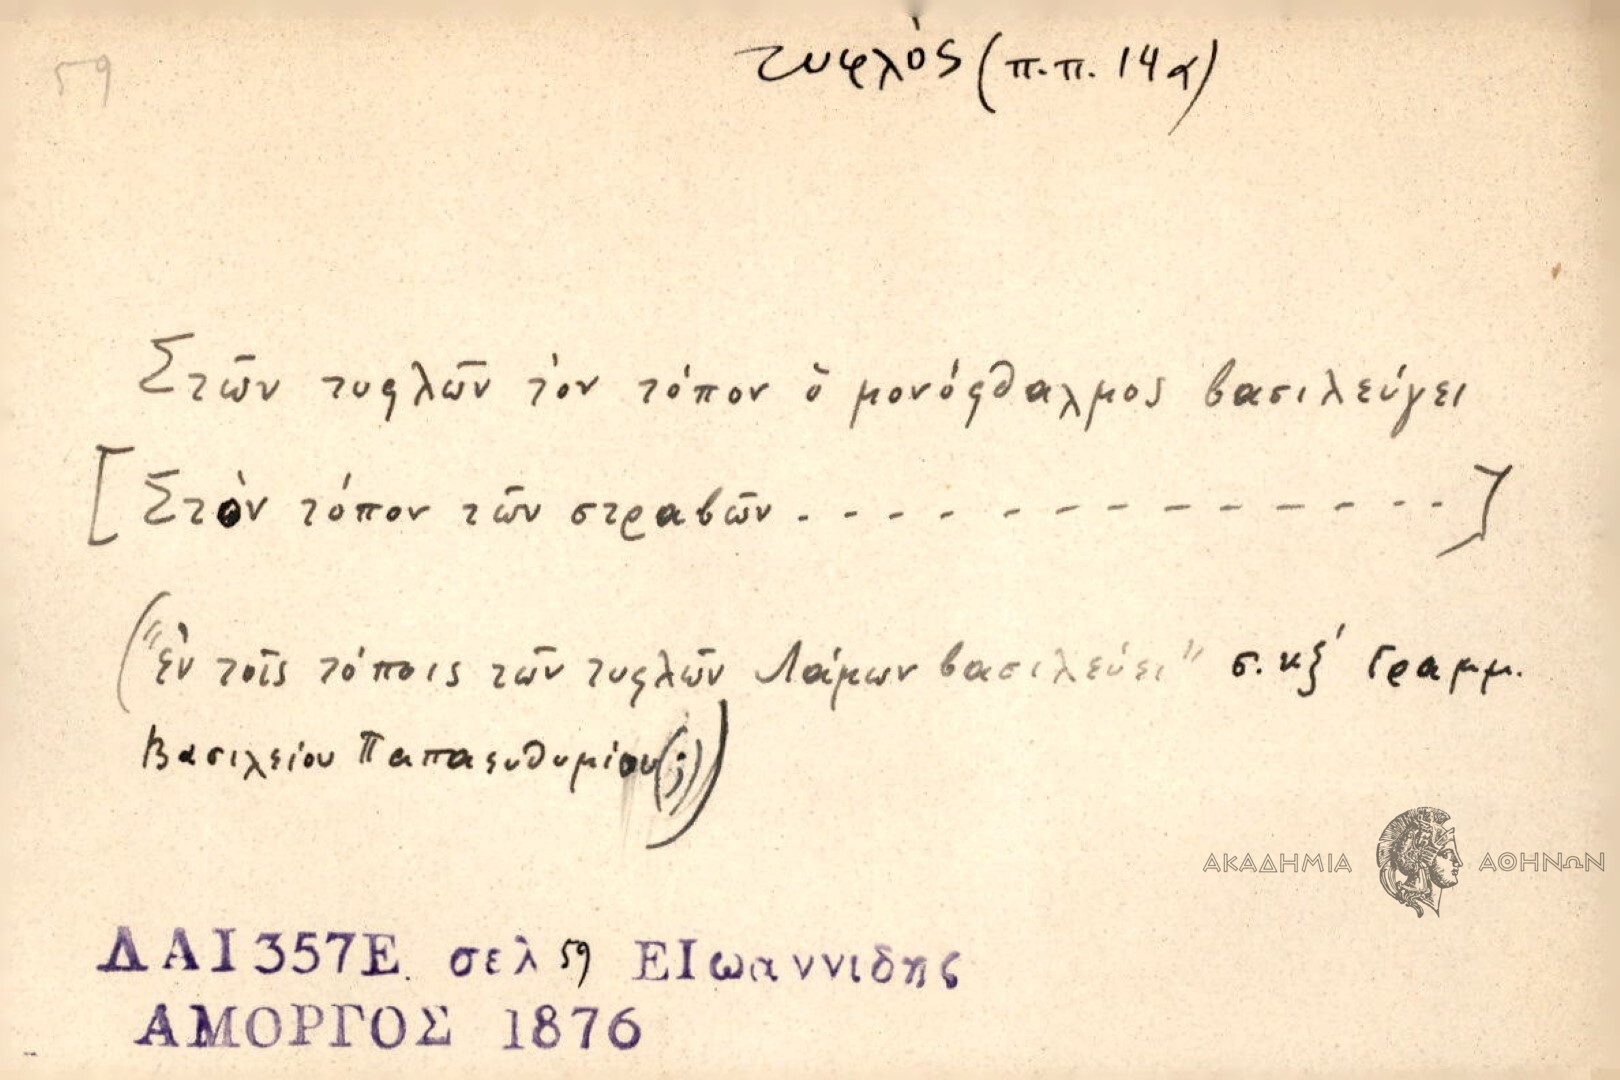 59
τυφλὸς (π.π. 14α)
Στῶν τυφλῶν τὸν τόπον ὁ μονόφθαλμος βασιλεύγει
[Στὸν τόπον τῶν στραβῶν . - - - - - - - - - - - - - - - ]
("ἐν τοῖς τόποις τῶν τυφλῶν Λάμων βασιλεύει" σ. κξ' Γραμμ.
Βασιλείου Παπαευθυμίου(;))
ΑΚΑΔΗΜΙΑ ΑΘΗΝΩΝ
ΔΑΙ357Ε. σελ 59 ΕΙωαννιδης
ΑΜΟΡΓΟΣ 1876